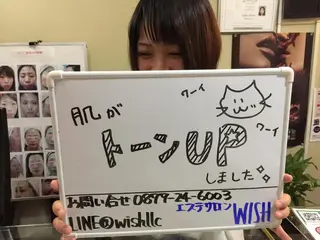 ワーイ
肌が
トーンUP
ワーイ
しました
お問い合せ 0877-24-6003
エステサロン WISH
LINE@wishllc